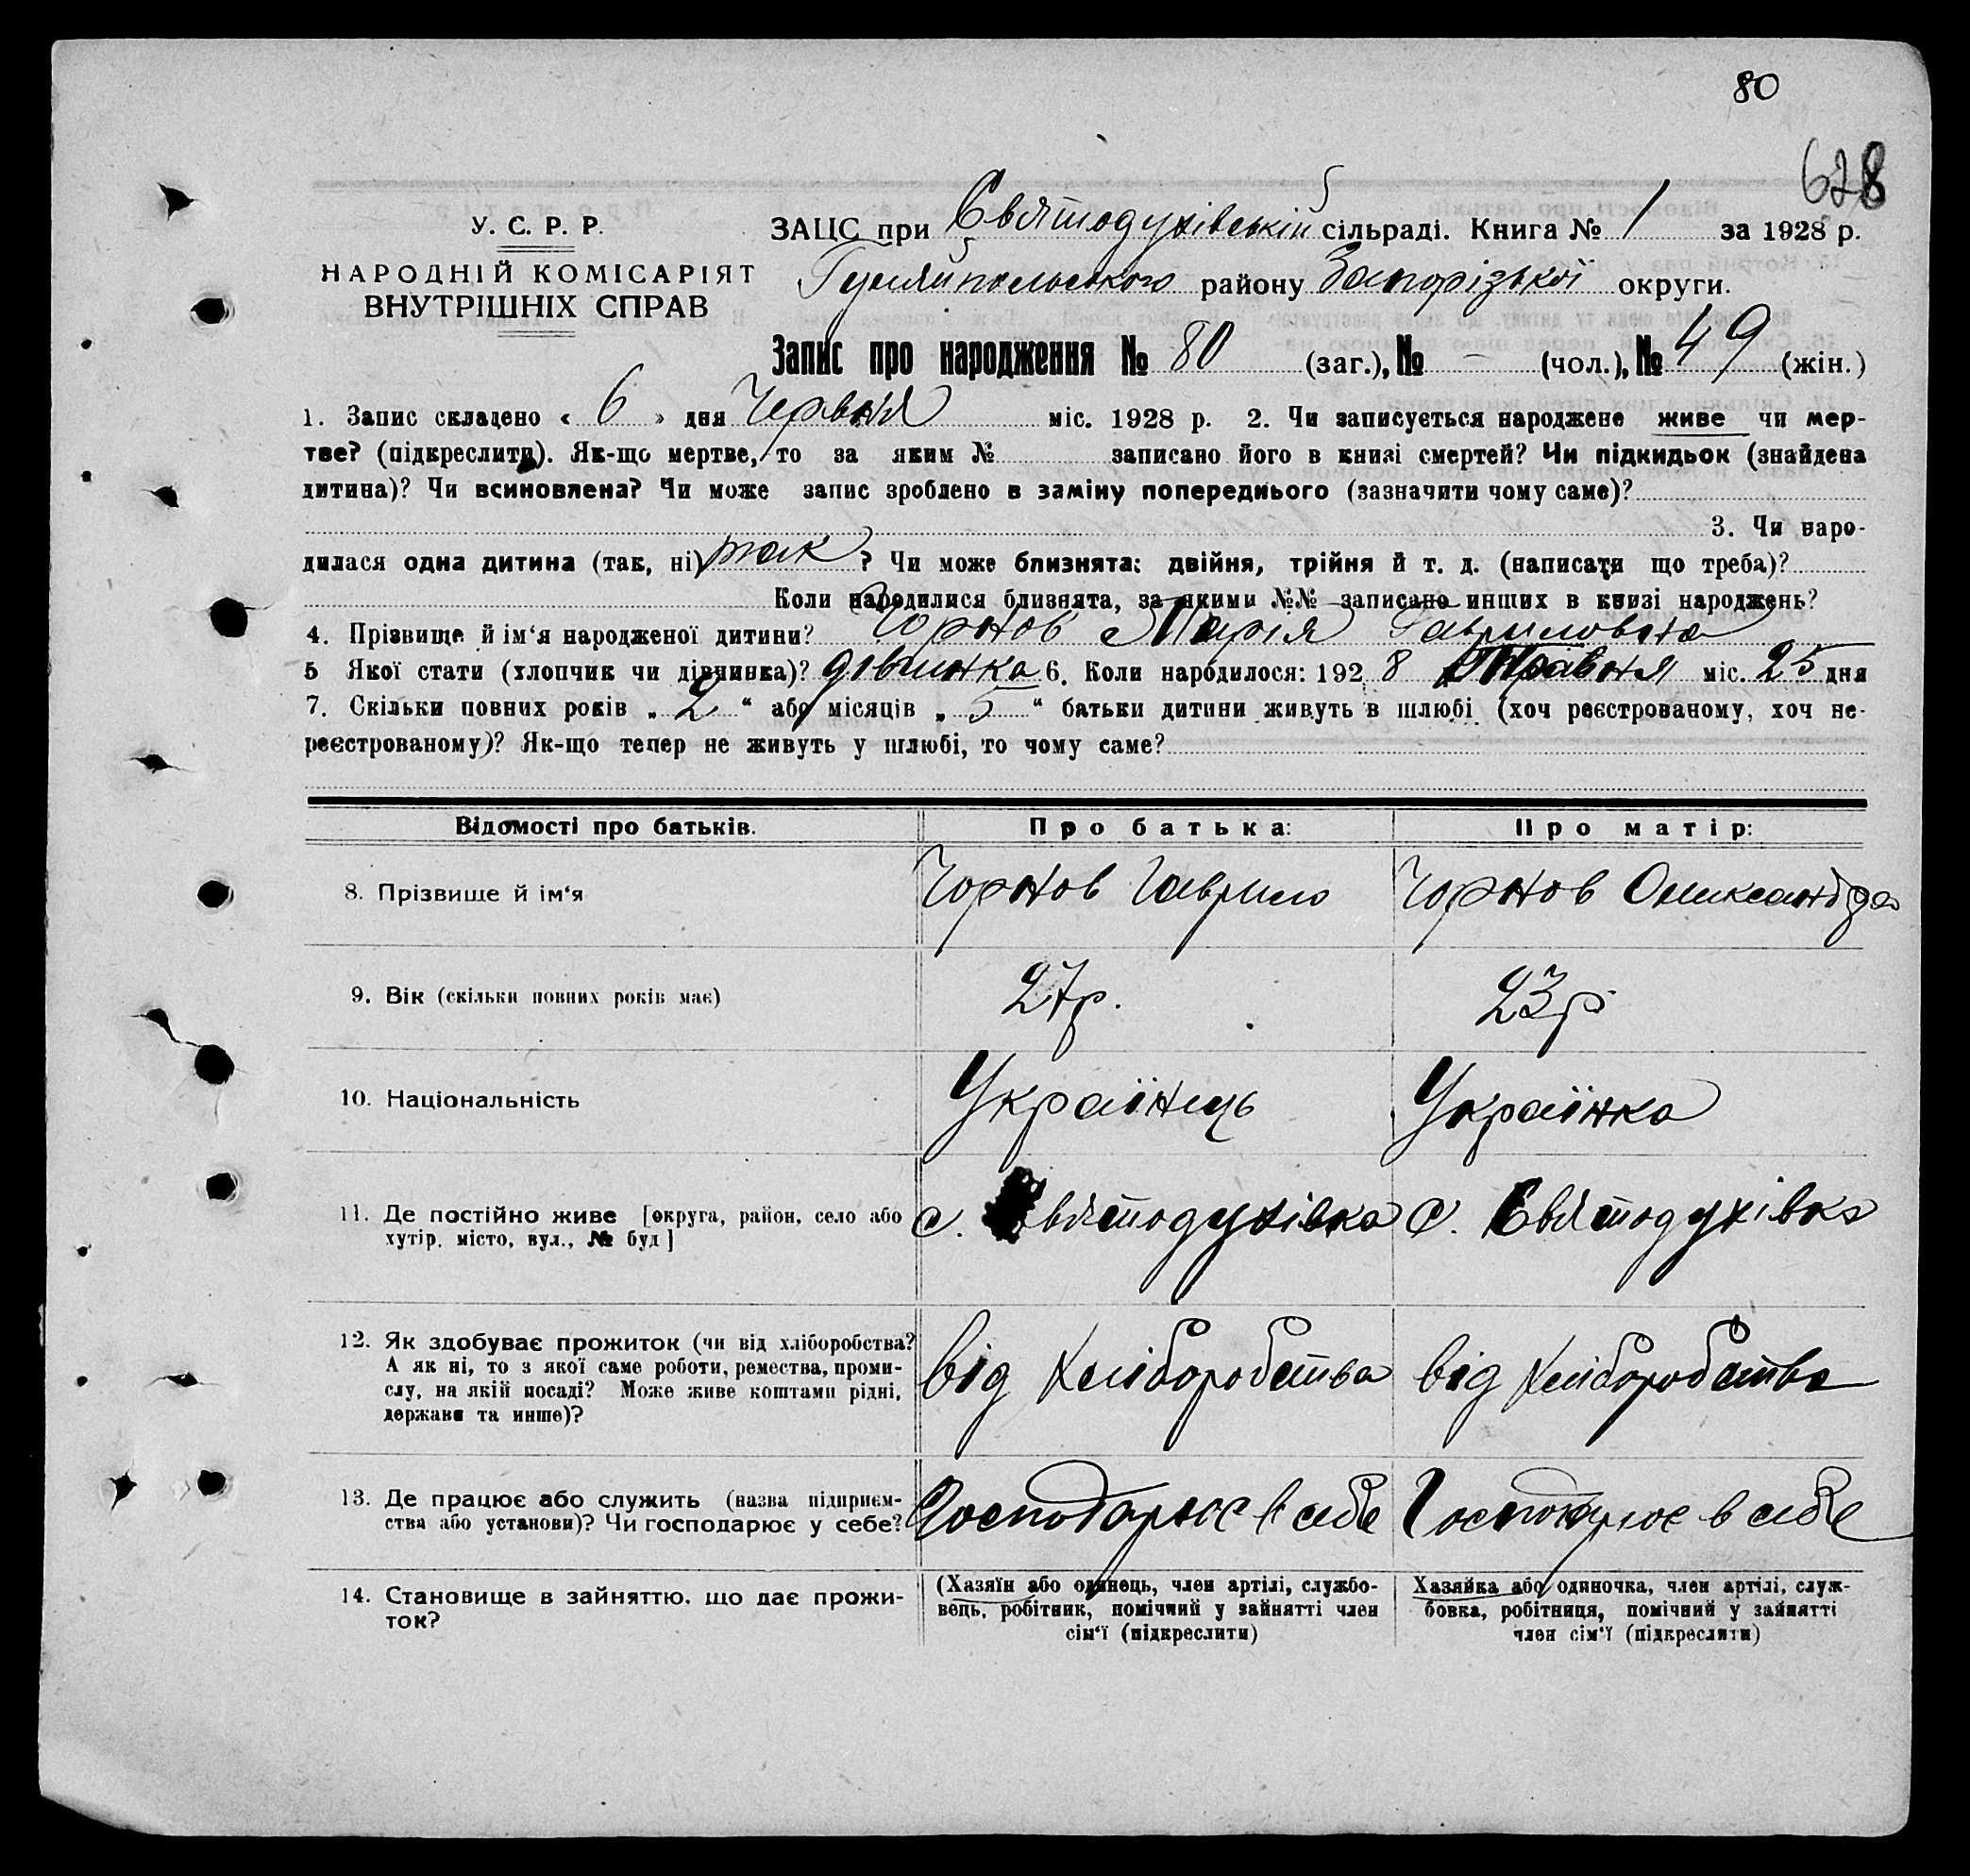 80
628
У. С. Р. Р.
НАРОДНІЙ КОМІСАРІЯТ
ВНУТРІШНІХ СПРАВ
ЗАЦС при Святодухівській сільраді. Книга № 1 за 1928 р.
Гуляйпольського району Запорізької округи.
Запис про народження № 80 (заг.), № — (чол.), № 49 (жін.)
1. Запис складено « 6 » дня Червня міс. 1928 р. 2. Чи записується народжене живе чи мер-
тве? (підкреслити). Як-що мертве, то за яким № записано його в книзі смертей? Чи підкидьок (знайдена
дитина)? Чи всиновлена? Чи може запис зроблено в заміну попереднього (зазначити чому саме)?
3. Чи наро-
дилася одна дитина (так, ні) так ? Чи може близнята: двійня, трійня й т. д. (написати що треба)?
Коли народилися близнята, за якими №№ записано инших в книзі народжень?
4. Прізвище й ім‘я народженої дитини? Чорнов Марія Гавриловна
5 Якої стати (хлопчик чи дівчинка)? дівчинка 6. Коли народилося: 192 8 Травня міс. 25 дня
7. Скільки повних років „ 2 “ або місяців „ 5 “ батьки дитини живуть в шлюбі (хоч реєстрованому, хоч не-
реєстрованому)? Як-що тепер не живуть у шлюбі, то чому саме?
Відомості про батьків. Про батька: Про матір:
8. Прізвище й ім‘я Чорнов Гаврило Чорнов Олександра
9. Вік (скільки повних років має) 27р. 23р
10. Національність Українець Українка
11. Де постійно живе [округа, район, село або
хутір, місто, вул., № буд] с. Святодухівка с. Святодухівка
12. Як здобуває прожиток (чи від хліборобства?
А як ні, то з якої саме роботи, ремества, проми-
слу, на якій посаді? Може живе коштами рідні,
держави та инше)? від хліборобства від хліборобства
13. Де працює або служить (назва підприєм-
ства або установи)? Чи господарює у себе? Господарює в себе Господарює в себе
14. Становище в зайняттю, що дає прожи-
ток?
(Хазяїн або одинець, член артілі, службо-
вець, робітник, помічний у зайнятті член
сім‘ї (підкреслити)
Хазяйка або одиночка, член артілі, служ-
бовка, робітниця, помічний у зайнятті
член сім‘ї (підкреслити)